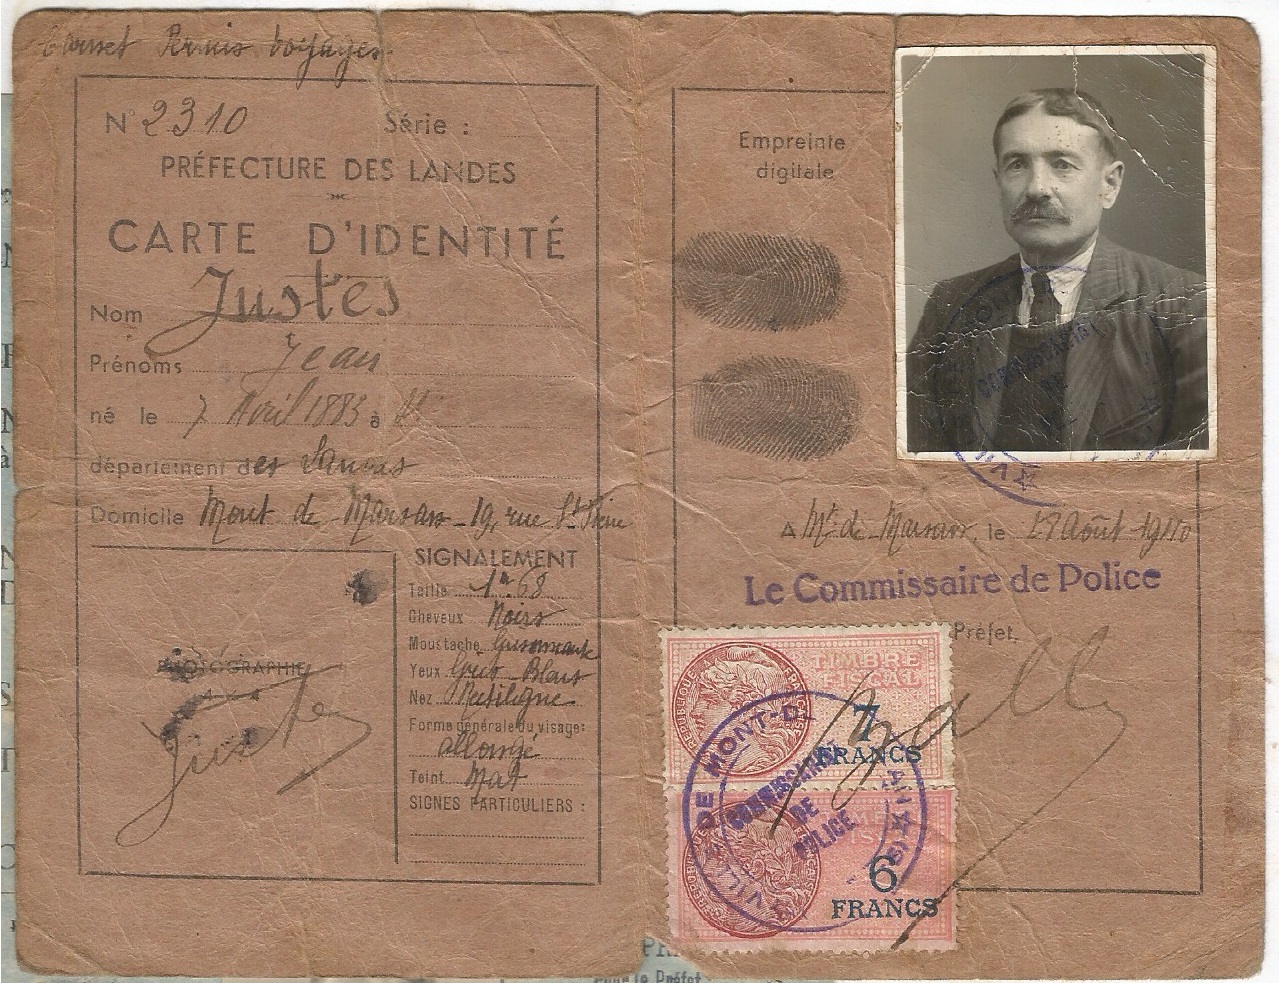 Permis voyages
N° 2310 Série :
PRÉFECTURE DES LANDES
CARTE D'IDENTITÉ
Nom Justes
Prénoms Jean
né le 7 Avril 1883 à
département des Landes
Domicile Mont de Marsan - 19, rue St
PHOTOGRAPHIE
Justes
SIGNALEMENT
Taille 1m68
Cheveux Noirs
Moustache Grisonnante
Yeux Gris Bleus
Nez Rectiligne
Forme générale du visage:
allongé
Teint Mat
SIGNES PARTICULIERS :
Empreinte
digitale
COMMISSARIAT
DE
A Mt de Marsan, le 28 Août 1940
Le Commissaire de Police
Préfet,
RÉPUBLIQUE FRANÇAISE
TIMBRE
FISCAL
7
FRANCS
VILLE DE MONT-DE
COMMISSARIAT
DE
POLICE
6
FRANCS
Pour le Préfet